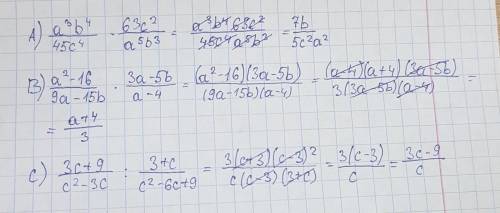 A) a³b⁴/45c⁴ · 63c²/a⁵b³ = a³b⁴63c²/45c⁴a⁵b³ = 7b/5c²a²
B) a²-16/9a-15b · 3a-5b/a-4 = (a²-16)(3a-5b)/(9a-15b)(a-4) = (a-4)(a+4)(3a-5b)/3(3a-5b)(a-4) =
= a+4/3
C) 3c+9/c²-3c : 3+c/c²-6c+9 = 3(c+3)(c-3)²/c(c-3)(3+c) = 3(c-3)/c = 3c-9/c